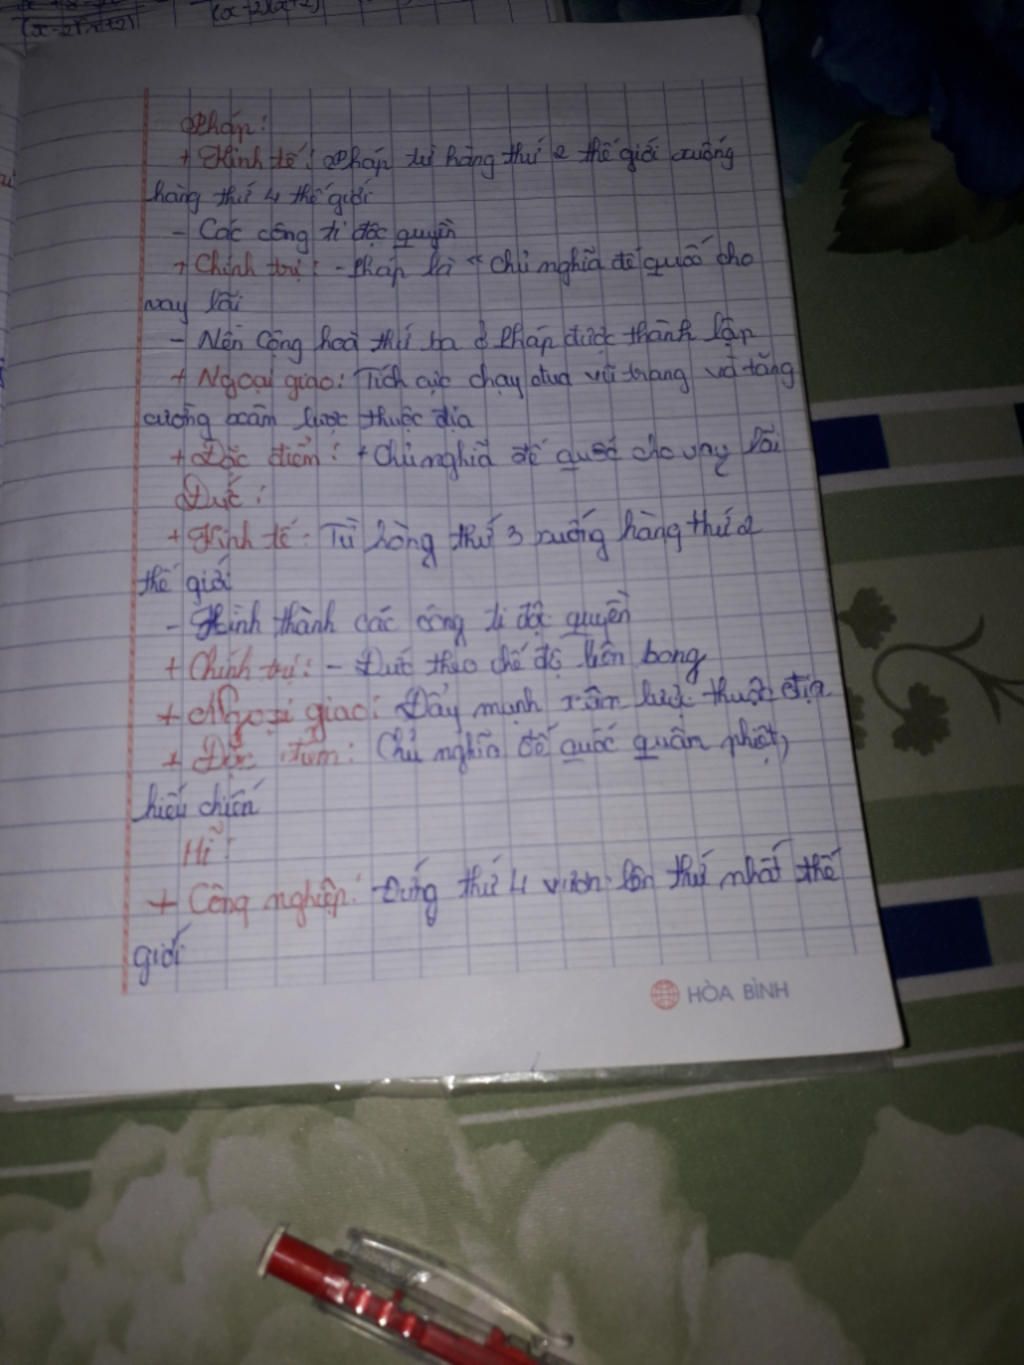 (x-2)(x+2)
(x-2)(x+2)
Pháp:
+ Kinh tế: Pháp từ hàng thứ 2 thế giới xuống
hàng thứ 4 thế giới
- Các công ti độc quyền
+ Chính trị: - Pháp là "chủ nghĩa đế quốc cho
vay lãi
- Nền Cộng hoà thứ ba ở Pháp được thành lập
+ Ngoại giao: Tích cực chạy đua vũ trang và tăng
cường xâm lược thuộc địa
+ Đặc điểm: + Chủ nghĩa đế quốc cho vay lãi
Đức:
+ Kinh tế: Từ hàng thứ 3 xuống hàng thứ 2
thế giới
- Hình thành các công ti độc quyền
+ Chính trị: - Đức theo chế độ liên bang
+ Ngoại giao: Đẩy mạnh xâm lược thuộc địa
+ Đặc điểm: Chủ nghĩa đế quốc quân phiệt,
hiếu chiến
Mĩ:
+ Công nghiệp: Đứng thứ 4 vươn lên thứ nhất thế
giới
HÒA BÌNH